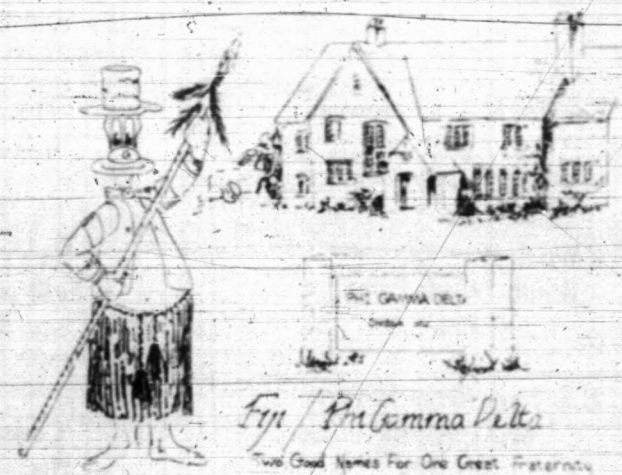 PHI GAMMA DELTA
Fiji / Phi Gamma Delta
Two Good Names For One Great Fraternity